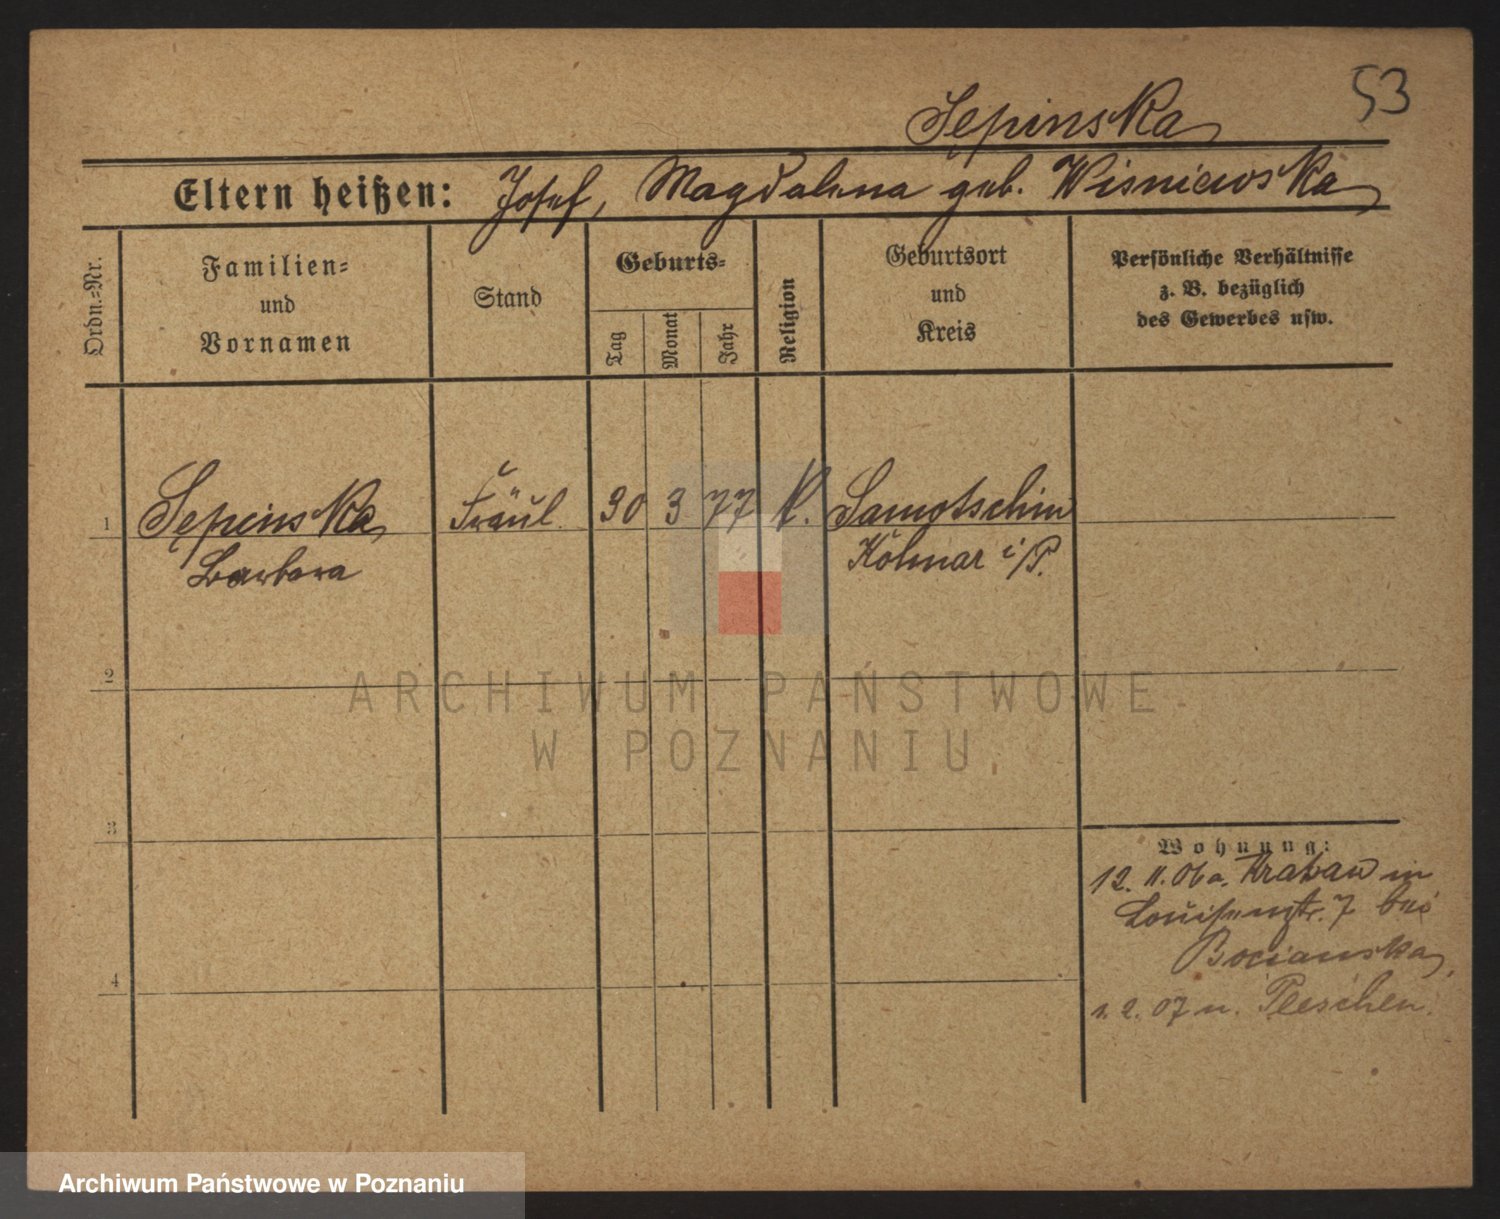 53
Sepinska
Eltern heißen: Josef, Magdalena geb. Wisniewska
Ordn.-Nr.
Familien- und Vornamen
Stand
Geburts-
Tag
Monat
Jahr
Religion
Geburtsort und Kreis
Persönliche Verhältnisse
z. B. bezüglich
des Gewerbes usw.
1 Sepinska Fräul. 30 3 77 k. Samotschin
Barbara Kolmar i/P.
2
ARCHIWUM PAŃSTWOWE
W POZNANIU
3
Wohnung:
12. 11. 06 a. Krakau in
Louisenstr. 7 bei
Bocianska,
4
1. 2. 07 n. Pleschen.
Archiwum Państwowe w Poznaniu